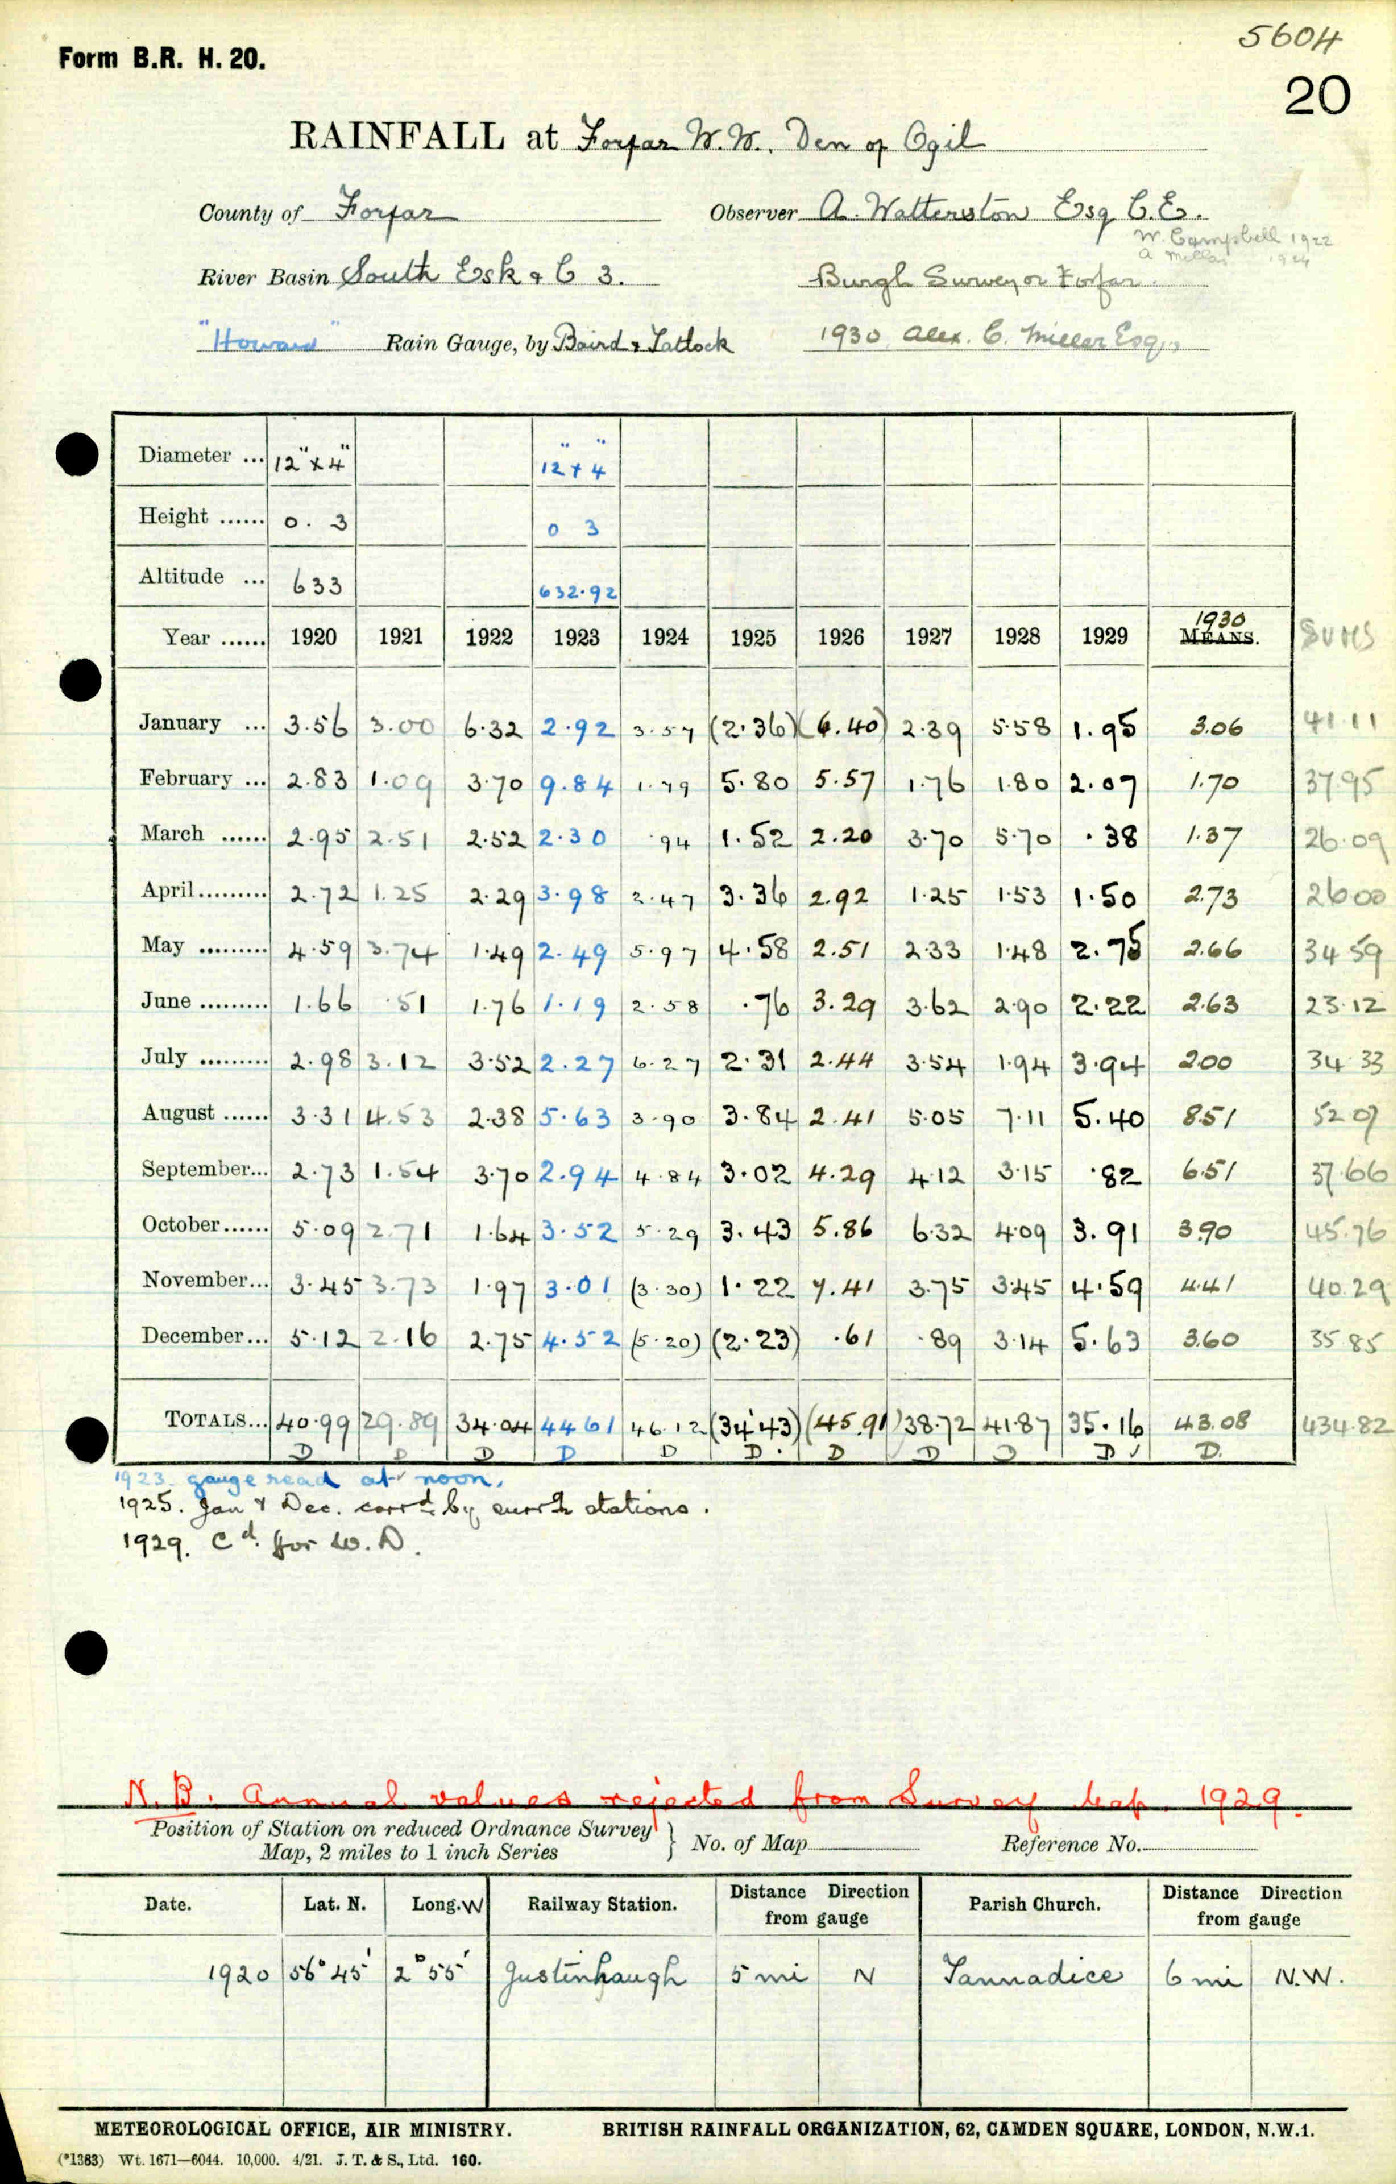 5604
Form B.R. H. 20.
20
RAINFALL at Forfar W.W. Den of Ogil
County of Forfar Observer A. Watterston Esq C.E.
W. Campbell 1922
A Millar 1924
River Basin South Esk & C 3. Burgh Surveyor Forfar
"Howard" Rain Gauge, by Baird & Tatlock 1930 Alex. C. Miller Esq.,
Diameter ... 12" x 4" 12" x 4"
Height ...... 0. 3 0 3
Altitude ... 633 632.92
1930
Year ...... 1920 1921 1922 1923 1924 1925 1926 1927 1928 1929 MEANS. SUMS
January ... 3.56 3.00 6.32 2.92 3.57 (2.36) (6.40) 2.39 5.58 1.95 3.06 41.11
February ... 2.83 1.09 3.70 9.84 1.79 5.80 5.57 1.76 1.80 2.07 1.70 37.95
March ...... 2.95 2.51 2.52 2.30 .94 1.52 2.20 3.70 5.70 .38 1.37 26.09
April ......... 2.72 1.25 2.29 3.98 2.47 3.36 2.92 1.25 1.53 1.50 2.73 26.00
May ......... 4.59 3.74 1.49 2.49 5.97 4.58 2.51 2.33 1.48 2.75 2.66 34.59
June ......... 1.66 .51 1.76 1.19 2.58 .76 3.29 3.62 2.90 2.22 2.63 23.12
July ......... 2.98 3.12 3.52 2.27 6.27 2.31 2.44 3.54 1.94 3.94 2.00 34.33
August ...... 3.31 4.53 2.38 5.63 3.90 3.84 2.41 5.05 7.11 5.40 8.51 52.07
September... 2.73 1.54 3.70 2.94 4.84 3.02 4.29 4.12 3.15 .82 6.51 37.66
October...... 5.09 2.71 1.64 3.52 5.29 3.43 5.86 6.32 4.09 3.91 3.90 45.76
November... 3.45 3.73 1.97 3.01 (3.30) 1.22 7.41 3.75 3.45 4.59 4.41 40.29
December... 5.12 2.16 2.75 4.52 (5.20) (2.23) .61 .89 3.14 5.63 3.60 35.85
TOTALS... 40.99 29.89 34.04 44.61 46.12 (34.43) (45.91) 38.72 41.87 35.16 43.08 434.82
D D D D D D. D D D D D.
1923 gauge read at noon.
1925. Jan & Dec. corrd by surrg stations.
1929. Cd. for W. D.
N.B. Annual values rejected from Survey Map. 1929.
Position of Station on reduced Ordnance Survey } No. of Map Reference No.
Map, 2 miles to 1 inch Series
Date. Lat. N. Long. W Railway Station. Distance Direction from gauge Parish Church. Distance Direction from gauge
1920 56° 45' 2° 55' Justinhaugh 5 mi N Tannadice 6 mi N.W.
METEOROLOGICAL OFFICE, AIR MINISTRY. BRITISH RAINFALL ORGANIZATION, 62, CAMDEN SQUARE, LONDON, N.W.1.
(*1383) Wt. 1671—6044. 10,000. 4/21. J. T. & S., Ltd. 160.